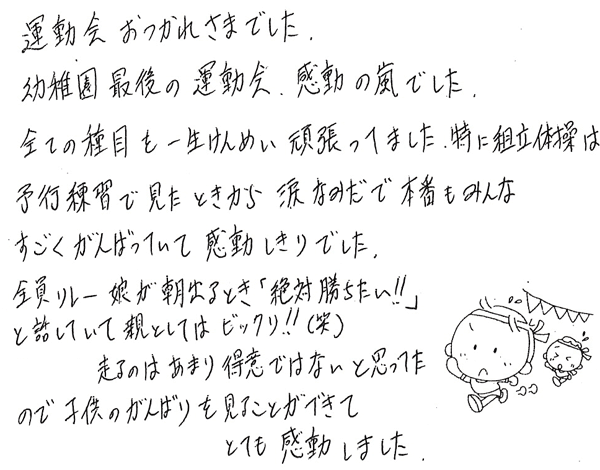 運動会 おつかれさまでした.
幼稚園 最後の 運動会、感動の嵐でした.
全ての種目も 一生けんめい 頑張ってました.特に組立体操は
予行練習で見たときから 涙 なみだで 本番もみんな
すごくがんばっていて 感動しきりでした.
全員リレー 娘が朝出るとき「絶対勝ちたい!!」
と話していて親としては ビックリ!!(笑)
走るのは あまり得意ではないと思ってた
ので 子供のがんばりを見ることができて
とても 感動しました.